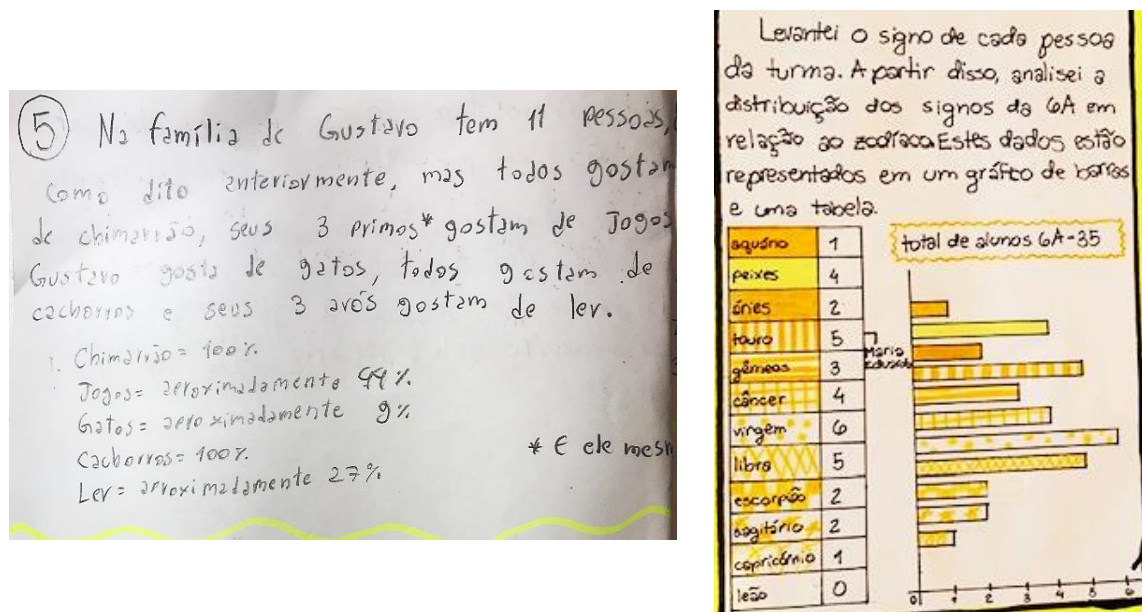 5 Na família de Gustavo tem 11 pessoas,
como dito anteriormente, mas todos gostam
de chimarrão, seus 3 primos* gostam de Jogos
Gustavo gosta de gatos, todos gostam de
cachorros e seus 3 avós gostam de ler.
1. Chimarrão = 100%.
Jogos = aproximadamente 44%.
Gatos = aproximadamente 9%.
Cachorros = 100%.
* E ele mesm
Ler = aproximadamente 27%.
Levantei o signo de cada pessoa
da turma. A partir disso, analisei a
distribuição dos signos da 6A em
relação ao zodíaco. Estes dados estão
representados em um gráfico de barras
e uma tabela.
total de alunos 6A-35
aquário 1
peixes 4
áries 2
touro 5
Maria
Eduarda
gêmeos 3
câncer 4
virgem 6
libra 5
escorpião 2
sagitário 2
capricórnio 1
leão 0
0 1 2 3 4 5 6